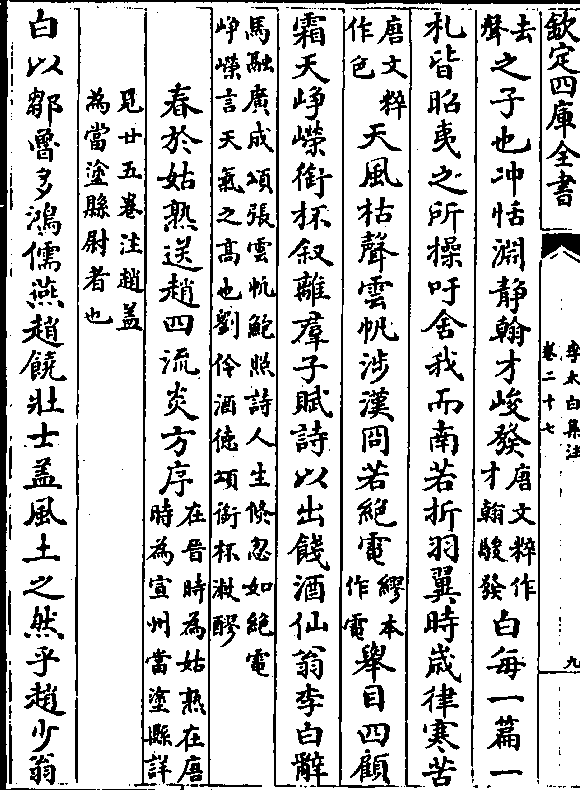 欽定四庫全書
李太白集注
卷二十七
九
去聲之子也冲恬淵静翰才峻發唐文粹作才翰駿發白每一篇一
札皆昭夷之所操吁舍我而南若折羽翼時歲律寒苦
唐文粹作色天風枯聲雲帆涉漢冏若絶電繆本作電舉目四顧
霜天崢嶸銜杯叙離羣子賦詩以出餞酒仙翁李白辭
馬融廣成頌張雲帆鮑照詩人生倏忽如絶電
崢嶸言天氣之高也劉伶酒徳頌銜杯漱醪
春於姑熟送趙四流炎方序在晉時為姑熟在唐時為宣州當塗縣詳
見廿五巻注趙盖
為當塗縣尉者也
白以鄒魯多鴻儒燕趙饒壯士盖風土之然乎趙少翁